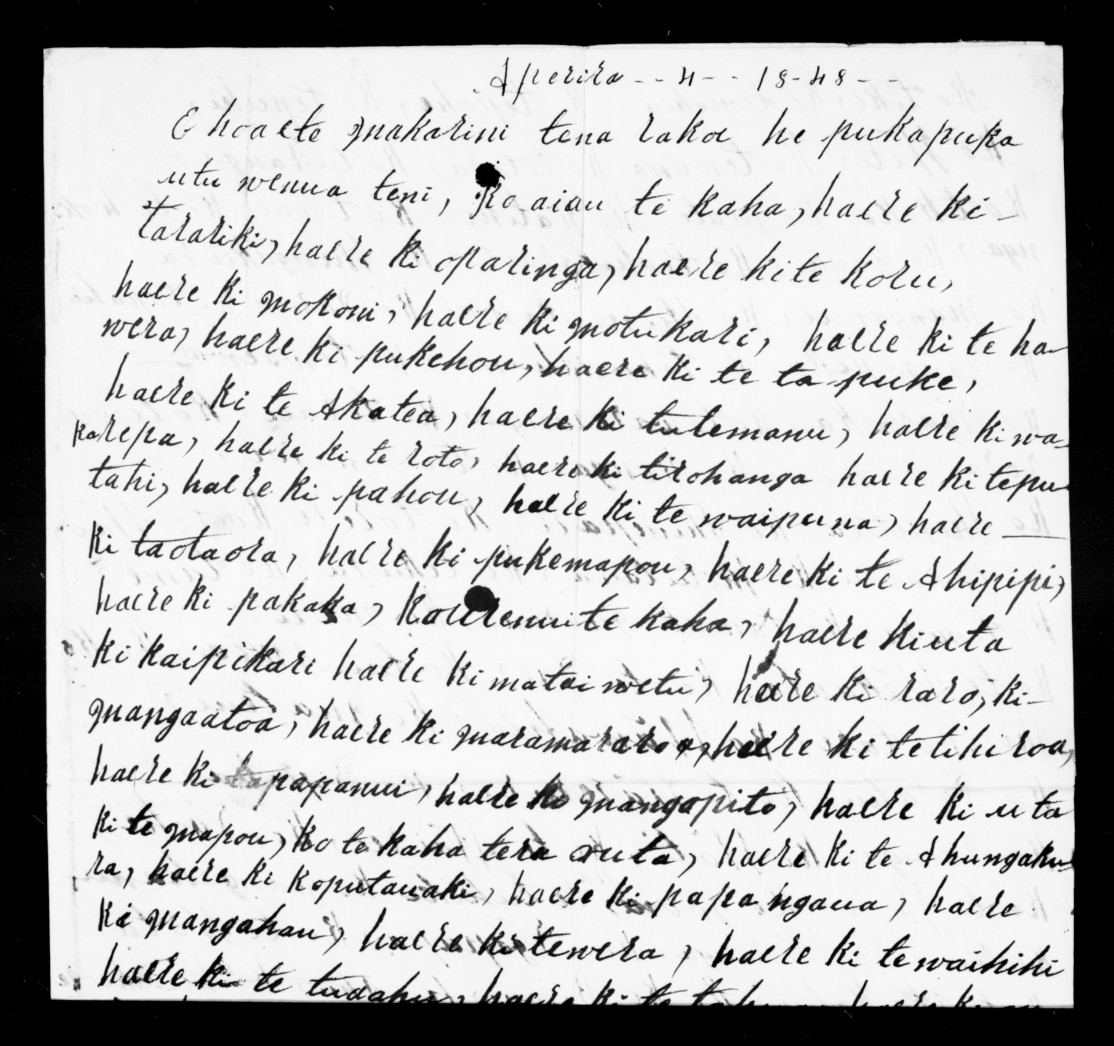 Aperira - - 4 - - 18-48 - -
E hoa ete makarini tena rakoe he pukapuka
utu wenua teni, Ko aiau te kaha, haere ki
tarariki, haere ki oparinga, haere kite koru,
haere ki mokoni, haere ki motukari, haere ki te ha
wera, haere ki pukehou, haere ki te ta puke,
haere ki te Akatea, haere ki tutemanu, haere ki wa
karepa, haere ki te roto, haere ki tirohanga haere ki tepu
tahi, haere ki pahou, haere ki te waipuna, haere
ki taotaora, haere ki pukemapou, haere ki te Ahipipi,
haere ki pakaka, te kaha, haere kiuta
ki kaipikari haere ki matai wetu, haere ki raro, ki
mangaatoa, haere ki maramararo haere ki tetihi roa,
haere ki tapapanui, haere ki mangapito, haere ki uta
ki te mapou, Ko te kaha tera outa, haere ki te Ahungaku
ra, haere ki koputauaki, haere ki papa ngaua, haere
ki mangahau, haere ki tewera, haere ki te waihihi
haere ki te tuaahu, haere ki te haere ki